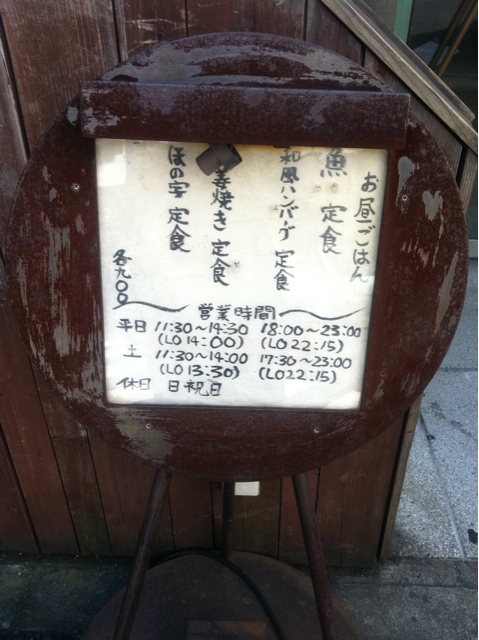 お昼ごはん
魚 定食
和風ハンバーグ 定食
姜焼き 定食
ほの字 定食
各九〇〇
営業時間
平日 11:30～14:30 18:00～23:00
(LO 14:00) (LO 22:15)
土 11:30～14:00 17:30～23:00
(LO 13:30) (LO 22:15)
休日 日祝日